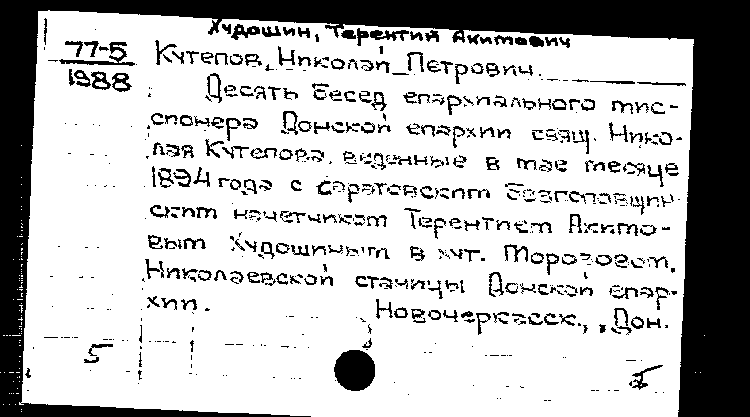 Худошин, Терентий Акимович
77-5
1988
Кутепов, Николай Петрович.
Десять бесед епархиального мис-
сионера Донской епархии свящ. Нико-
лая Кутепова, веденные в мае месяце
1894 года с саратовским безпоповщин-
ским начетчиком Терентием Акимо-
вым Худошиным в хут. Морозовом,
Николаевской станицы Донской епар-
хии.
Новочеркасск, „Дон.
5
Б